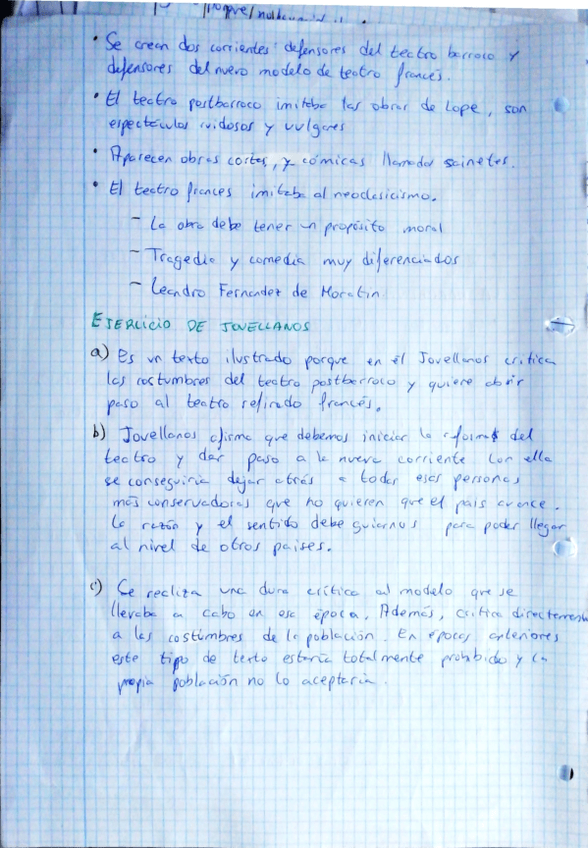 • Se crean dos corrientes: defensores del teatro barroco y
defensores del nuevo modelo de teatro francés.
• El teatro postbarroco imitaba las obras de Lope, son
espectáculos ruidosos y vulgares
• Aparecen obras cortas, y cómicas llamadas sainetes.
• El teatro frances imitaba al neoclasicismo.
- La obra debe tener un propósito moral
- Tragedia y comedia muy diferenciados
- Leandro Fernandez de Moratin
EJERCICIO DE JOVELLANOS
a) Es un texto ilustrado porque en él Jovellanos critica
las costumbres del teatro postbarroco y quiere abrir
paso al teatro refinado francés.
b) Jovellanos afirma que debemos iniciar la reforma del
teatro y dar paso a la nueva corriente. Con ella
se conseguiria dejar atrás a todas esas personas
más conservadoras que no quieren que el pais avance.
La razón y el sentido debe guiarnos para poder llegar
al nivel de otros paises.
c) Se realiza una dura crítica al modelo que se
llevaba a cabo en esa época. Además, critica directamente
a las costumbres de la población. En épocas anteriores
este tipo de texto estaría totalmente prohibido y la
propia población no lo aceptaria.